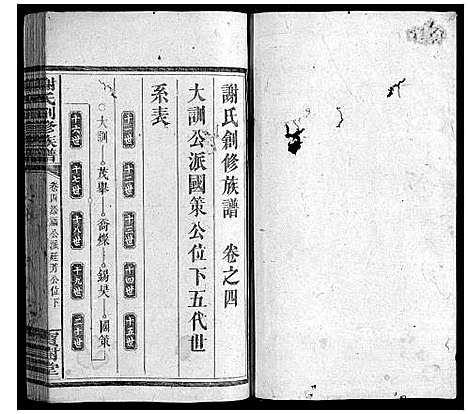 謝氏創修族譜 卷之四
大訓公派國策公位下五代世
系表
十一世 十二世 十三世 十四世 十五世
大訓 茂舉 喬燦 錫旲 國策
十六世 十七世 十八世 十九世 二十世
謝氏創修族譜
卷四 公派廷芳公位下
寶樹堂